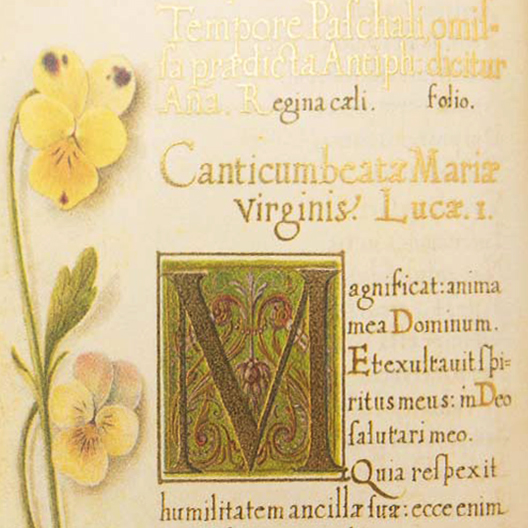 Tempore Paſchali, omiſ-
ſa prædicta Antiph: dicitur
Aña. Regina cæli. folio.
Canticum beatæ Mariæ
Virginis. Lucæ. 1.
Magnificat: anima
mea Dominum.
Et exultauit ſpi=
ritus meus: in Deo
ſalutari meo.
Quia reſpexit
humilitatem ancillæ ſuæ: ecce enim